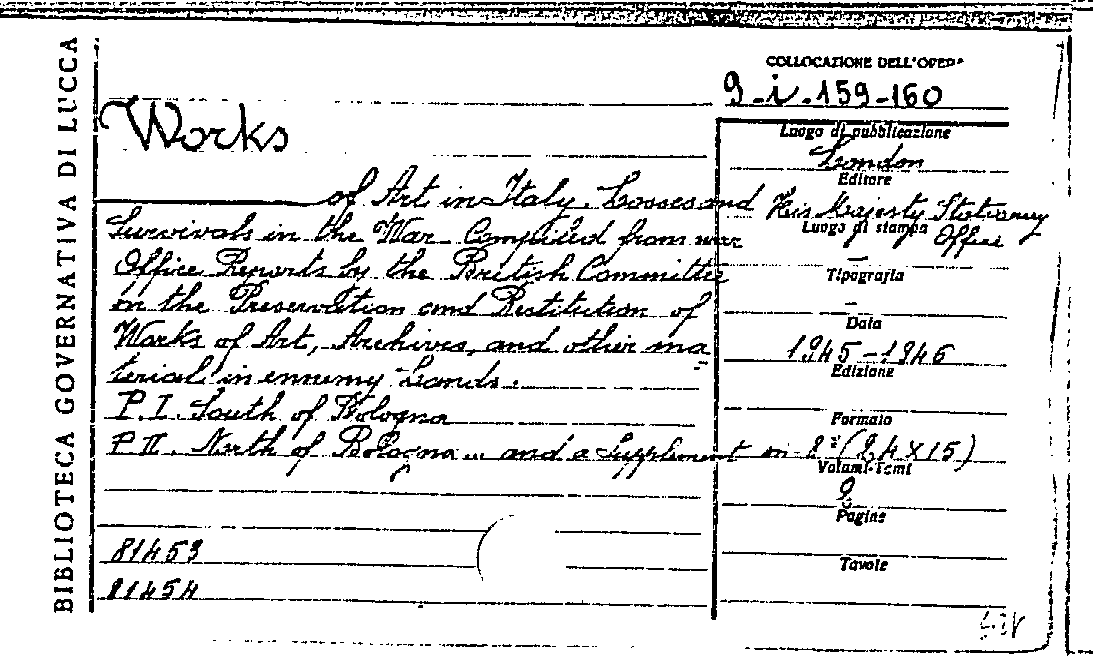 BIBLIOTECA GOVERNATIVA DI LUCCA
COLLOCAZIONE DELL'OPERA
9-i-159-160
Works
of Art in Italy. Losses and
Survivals in the War. Compiled from war
Office Reports by the British Committee
on the Preservation and Restitution of
Works of Art, Archives, and other ma
terial in ennemy Lands.
P. I. South of Bologna
P II. North of Bologna... and a Supplement on
81453
81454
Luogo di pubblicazione
London
Editore
His Majesty Stationary
Office
Luogo di stampa
Tipografia
Data
1945-1946
Edizione
Formato
8° (24X15)
Volumi-Tomi
2
Pagine
Tavole